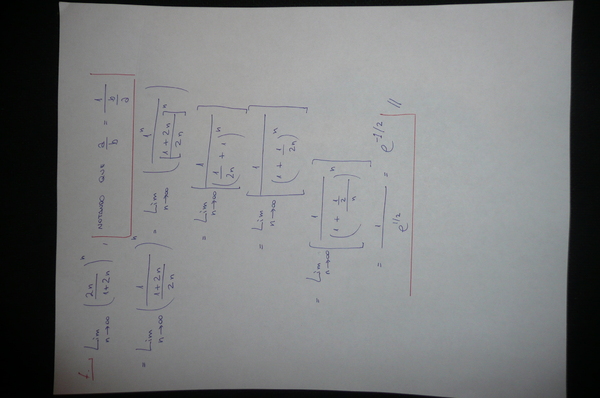 f. Lim n→∞ (2n/(1+2n))^n ; NOTANDO QUE a/b = 1/(b/a)
= Lim n→∞ (1/((1+2n)/2n))^n = Lim n→∞ (1^n/[(1+2n)/2n]^n)
= Lim n→∞ [1/(1/2n + 1)^n]
= Lim n→∞ [1/(1 + 1/2n)^n]
= Lim n→∞ [1/(1 + (1/2)/n)^n]
= 1/e^(1/2) = e^(-1/2) //